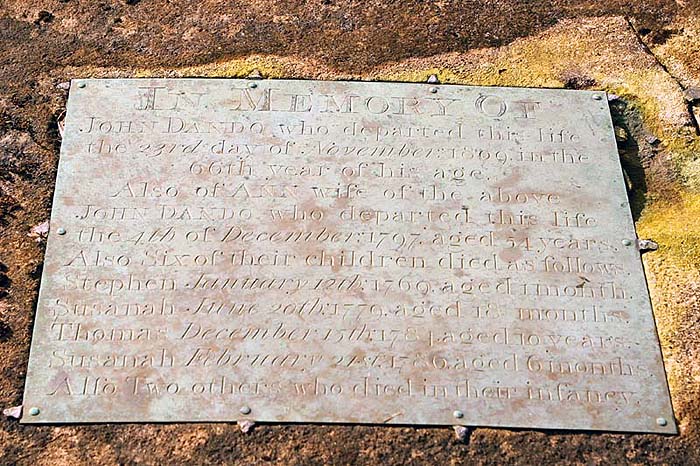 IN MEMORY OF
JOHN DANDO who departed this life
the 23rd day of November: 1809, in the
66th year of his age.
Also of ANN wife of the above
JOHN DANDO who departed this life
the 4th of December: 1797, aged 54 years.
Also Six of their children died as follows.
Stephen January 12th: 1769, aged 1 month.
Susanah June 20th: 1779, aged 18 months.
Thomas December 15th: 1784, aged 10 years.
Susanah February 21st: 1786, aged 6 months
Alſo Two others who died in their infancy.